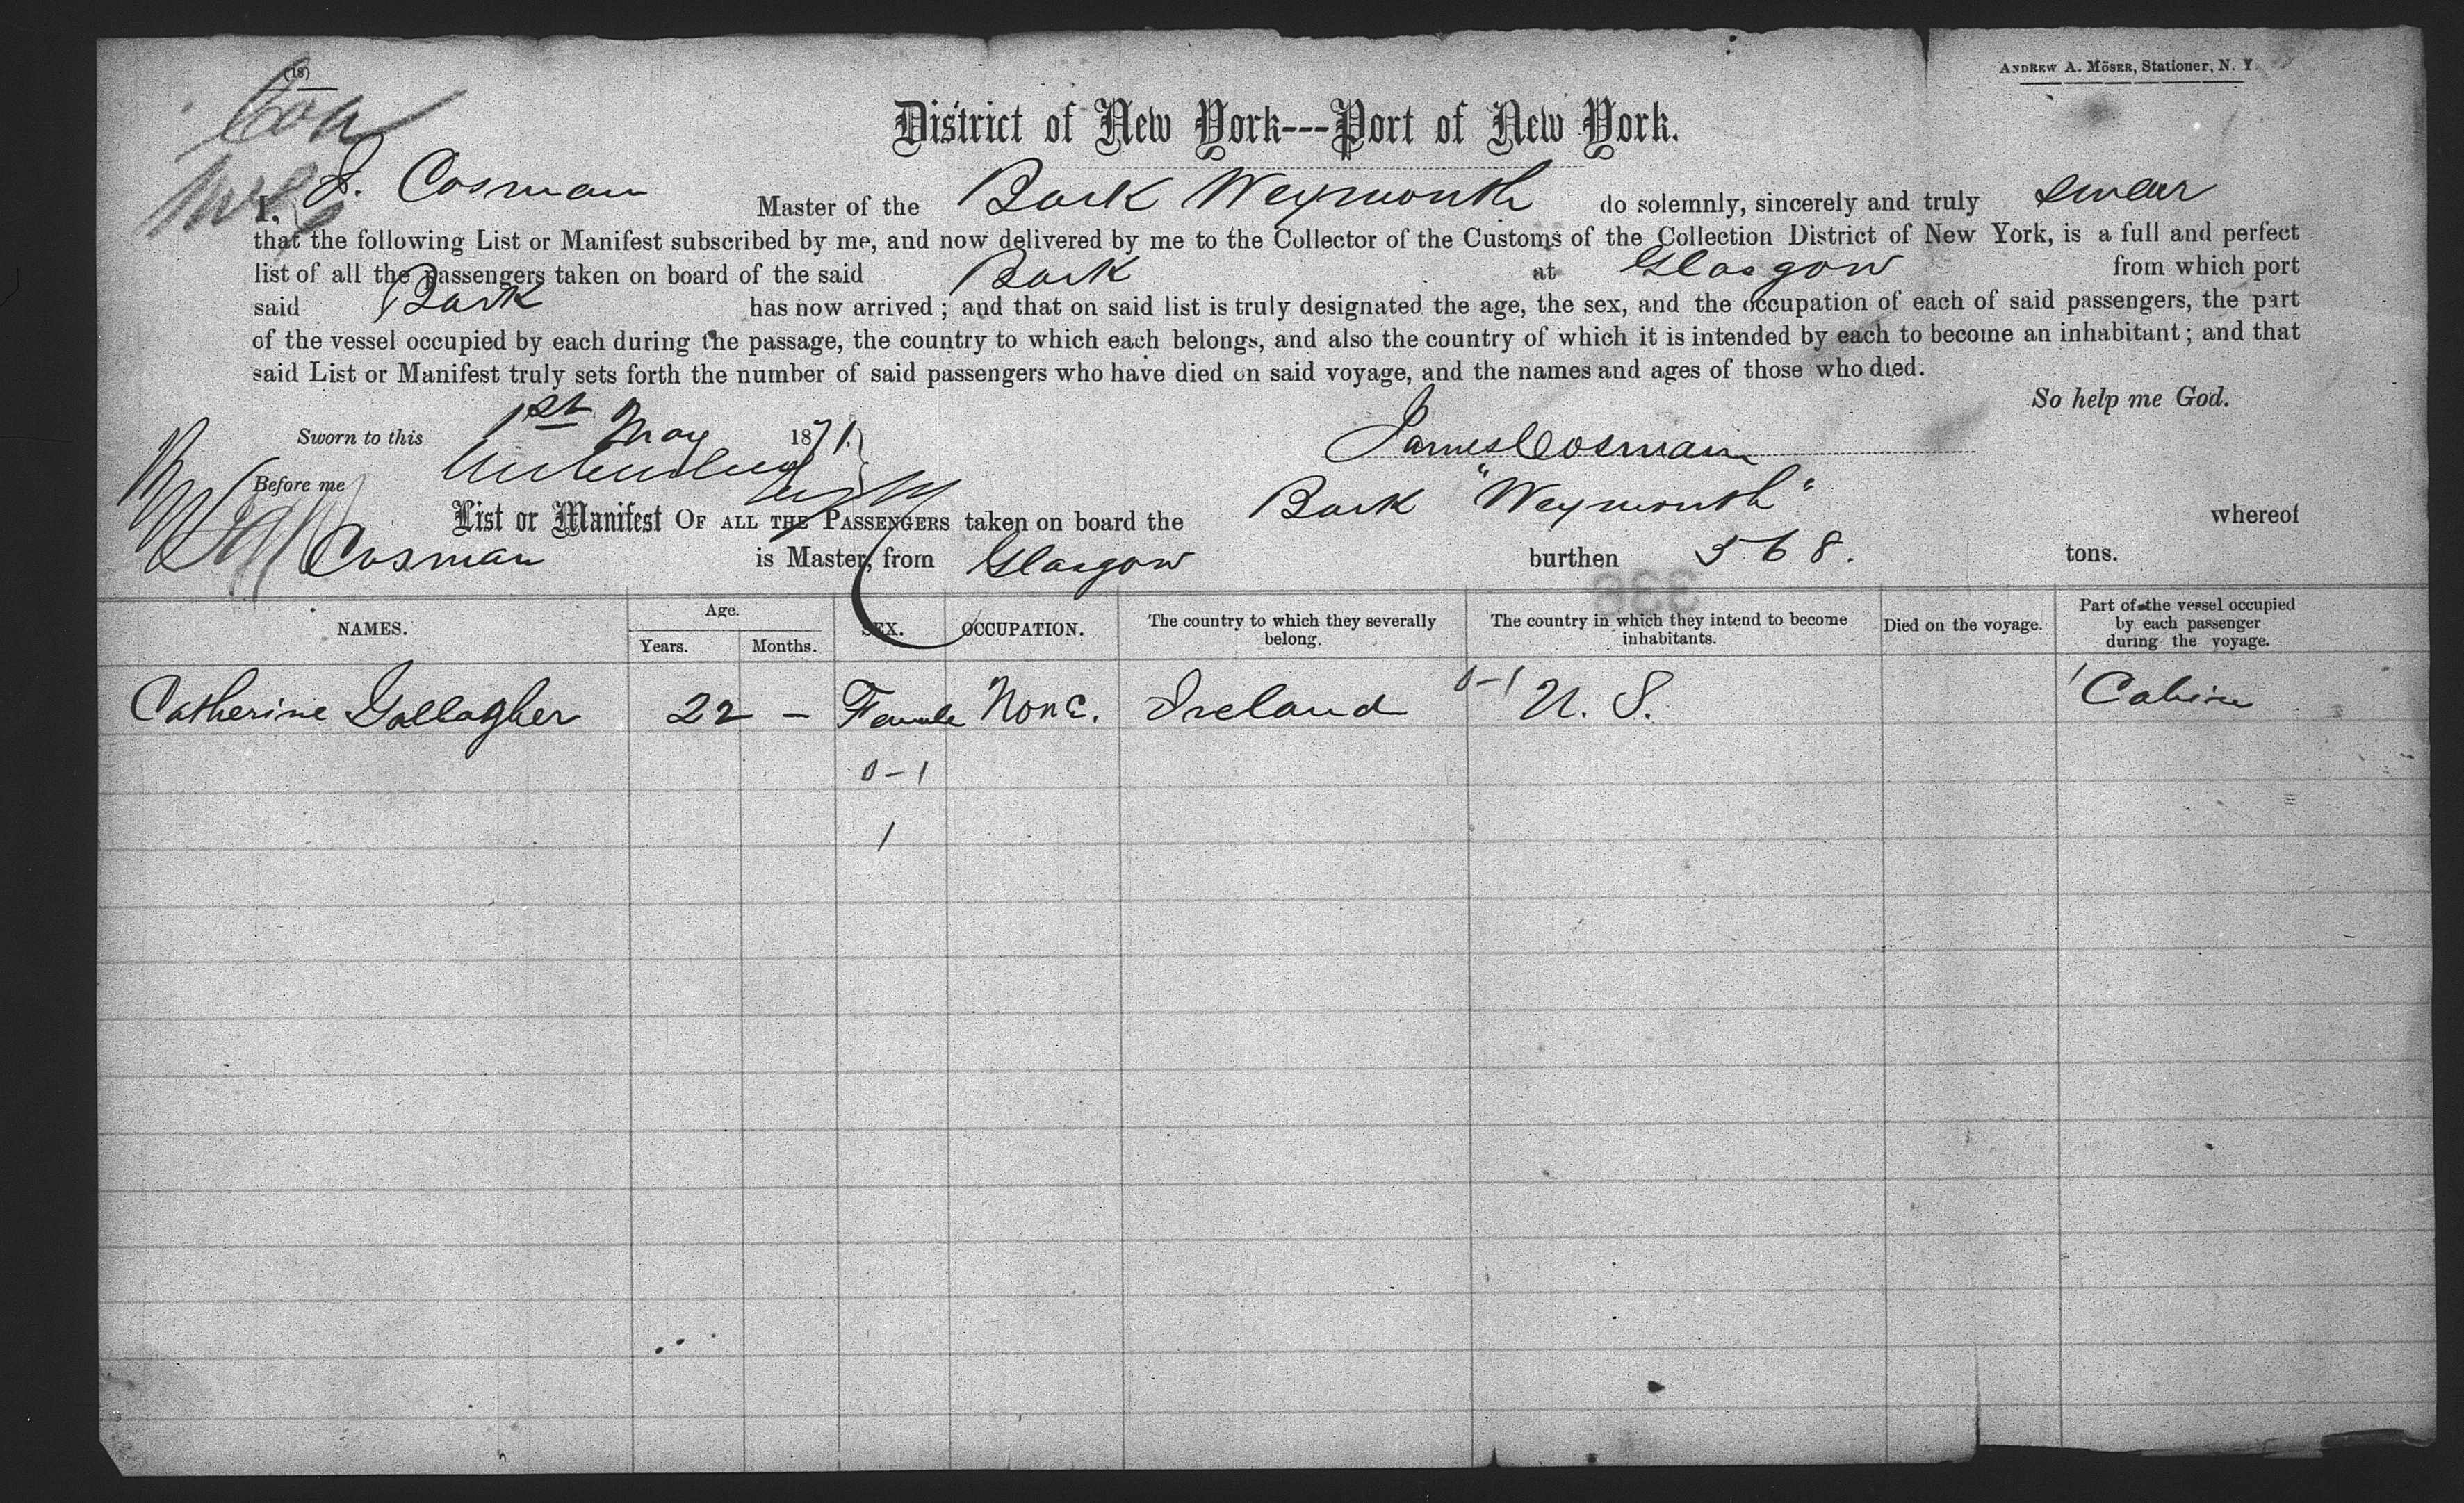 (18)
ANDREW A. MÖSER, Stationer, N. Y.
District of New York---Port of New York.
I, J. Cosman Master of the Bark Weymouth do solemnly, sincerely and truly swear
that the following List or Manifest subscribed by me, and now delivered by me to the Collector of the Customs of the Collection District of New York, is a full and perfect
list of all the passengers taken on board of the said Bark at Glasgow from which port
said Bark has now arrived; and that on said list is truly designated the age, the sex, and the occupation of each of said passengers, the part
of the vessel occupied by each during the passage, the country to which each belongs, and also the country of which it is intended by each to become an inhabitant; and that
said List or Manifest truly sets forth the number of said passengers who have died on said voyage, and the names and ages of those who died.
So help me God.
Sworn to this 1st May 1871. James Cosman
Before me
List or Manifest OF ALL THE PASSENGERS taken on board the Bark "Weymouth" whereof
Cosman is Master, from Glasgow burthen 568. tons.
NAMES. Age. Years. Months. SEX. OCCUPATION. The country to which they severally belong. The country in which they intend to become inhabitants. Died on the voyage. Part of the vessel occupied by each passenger during the voyage.
Catherine Gallagher 22 - Female None. Ireland 0-1 U. S. 1 Cabin
0-1
1